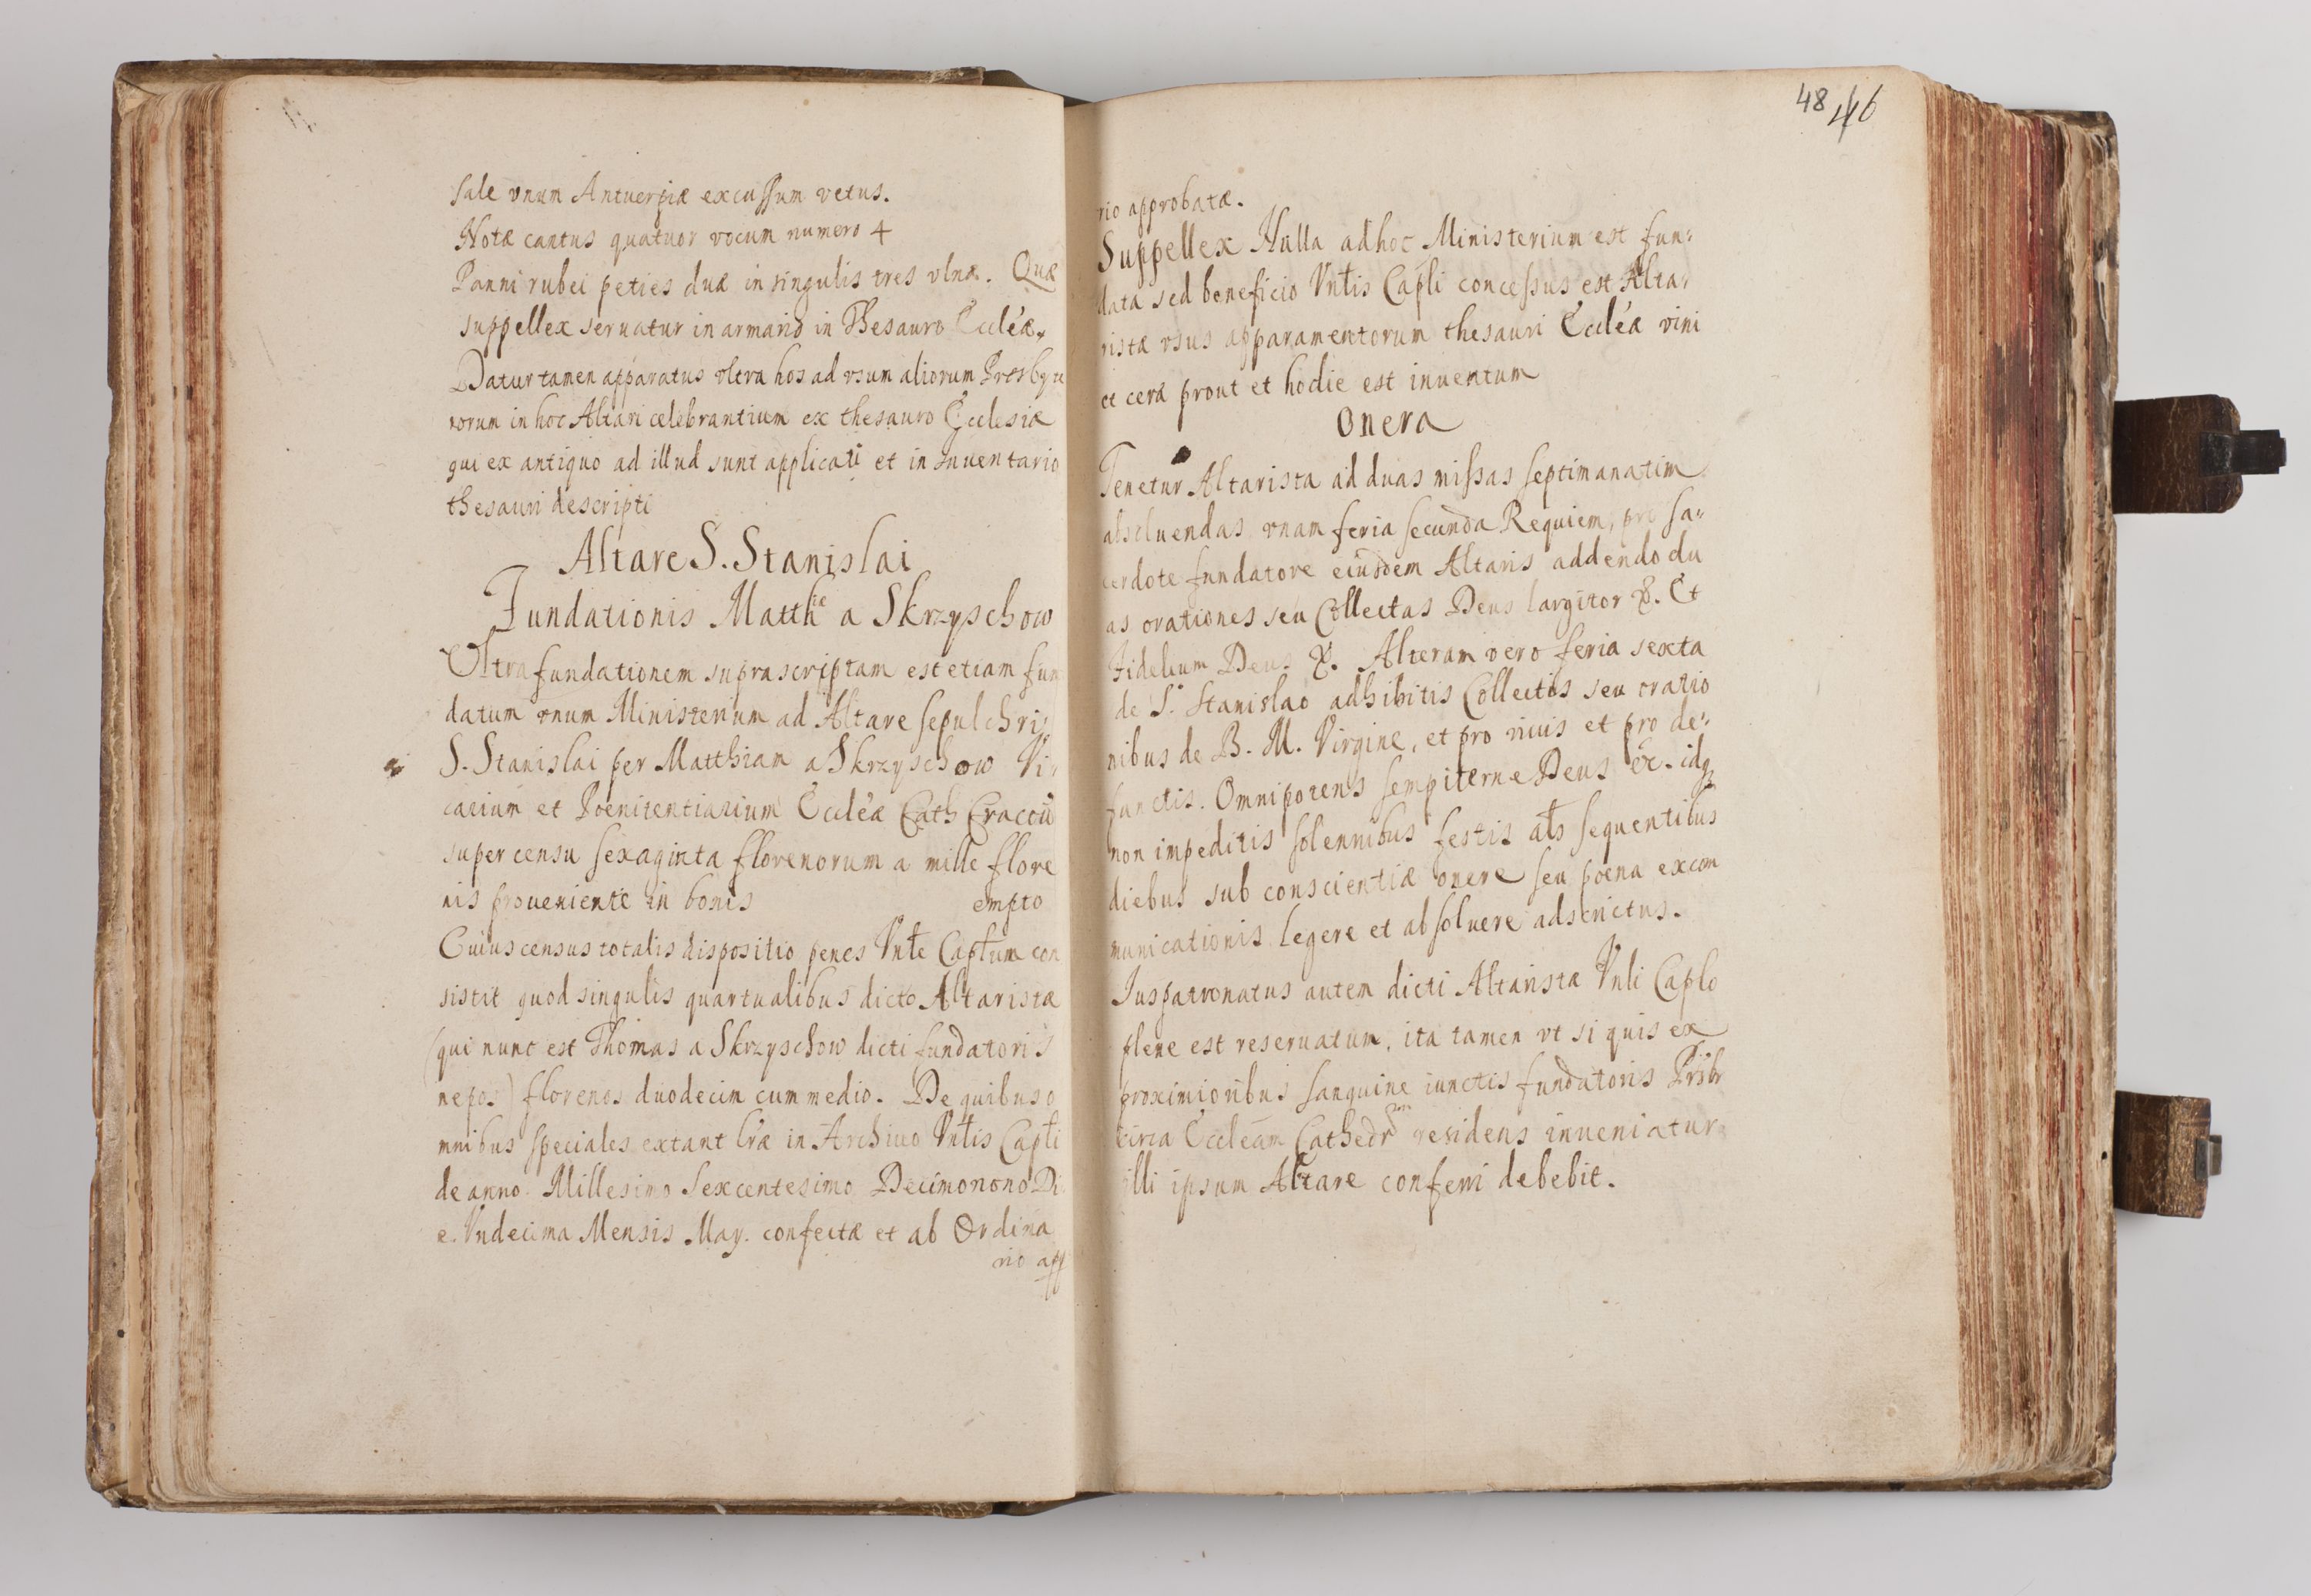 sale vnum Antuerpiæ excussum vetus.
Notæ cantus quatuor vocum numero 4
Panni rubei peties duæ in singulis tres vlnæ. Quæ
suppellex seruatur in armario in Thesauro Eccléæ.
Datur tamen apparatus vltra hos ad vsum aliorum Presbyte
rorum in hoc Altari celebrantium ex thesauro Ecclesiæ
qui ex antiquo ad illud sunt applicati et in Inuentario
thesauri descripti
Altare S. Stanislai
Fundationis Matthiæ a Skrzyschow
Vltra fundationem suprascriptam est etiam fun
datum vnum Ministerium ad Altare sepulchri
S. Stanislai per Matthiam a Skrzyschow Vi
carium et Poenitentiarium Eccléæ Cath Cracou
super censu sexaginta florenorum a mille flore
nis proueniente in bonis empto
Cuius census totalis dispositio penes Vnle Caplum con
sistit quod singulis quartualibus dicto Altaristæ
(qui nunc est Thomas a Skrzyschow dicti fundatoris
nepos) florenos duodecim cum medio. De quibus o
mnibus speciales extant lræ in Archiuo Vnlis Capli
de anno Millesimo Sexcentesimo Decimonono Di
e. Vndecima Mensis May. confectæ et ab Ordina
rio app
48 46
rio approbatæ.
Suppellex Nulla ad hoc Ministerium est fun-
data sed beneficio Vnlis Capli concessus est Alta-
ristæ vsus apparamentorum thesauri Eccléæ vini
et ceræ prout et hodie est inuentum
Onera
Tenetur Altarista ad duas missas septimanatim
absoluendas vnam feria secunda Requiem, pro sa-
cerdote fundatore eiusdem Altaris addendo du
as orationes seu Collectas Deus largitor &. Et
Fidelium Deus &. Alteram vero feria sexta
de S. Stanislao adhibitis Collectis seu oratio
nibus de B. M. Virgine, et pro viuis et pro de-
functis. Omnipotens sempiterne Deus &c. idq
non impeditis solennibus festis als sequentibus
diebus sub conscientiæ onere seu poena excom
municationis legere et absoluere adstrictus.
Juspatronatus autem dicti Altaristæ Vnli Caplo
plene est reseruatum, ita tamen vt si quis ex
proximioribus sanguine iunctis fundatoris Prsbr
circa Eccleam Cathedrem residens inueniatur
illi ipsum Altare conferri debebit.